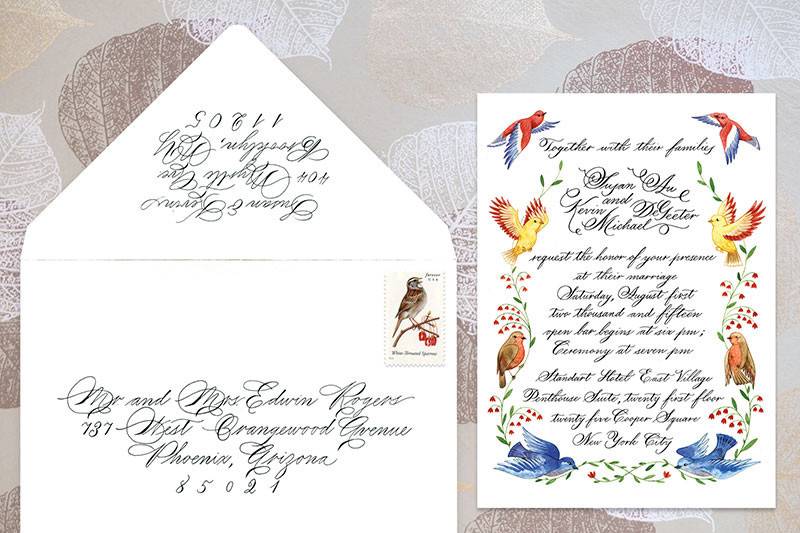 Susan & Kevin
404 Myrtle Ave
Brooklyn, NY
11205
forever
USA
White-throated Sparrow
Mr and Mrs Edwin Rogers
737 West Orangewood Avenue
Phoenix, Arizona
85021
Together with their families
Susan Au
and
Kevin DeGeeter
Michael
request the honor of your presence
at their marriage
Saturday, August first
two thousand and fifteen
open bar begins at six pm;
Ceremony at seven pm
Standart Hotel East Village
Penthouse Suite, twenty first floor
twenty five Cooper Square
New York City